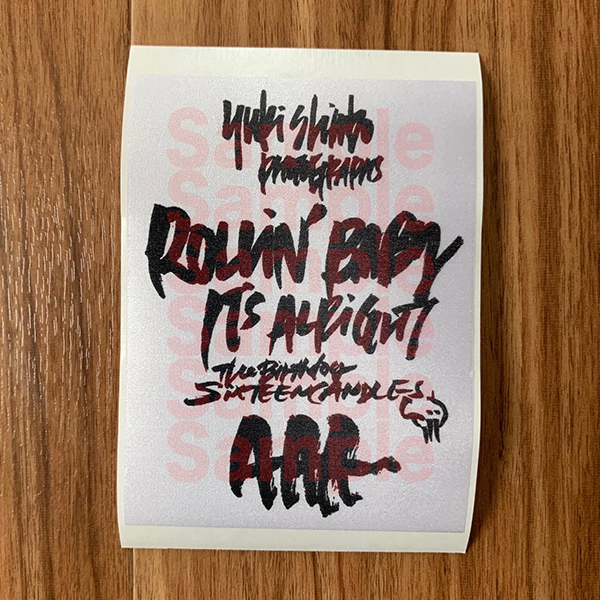 Yuki Shinto
PHOTOGRAPHS
ROLLIN' BABY
IT'S ALRIGHT
The Birthday
SIXTEEN CANDLES
Sample
Sample
Sample
Sample
Sample
Sample